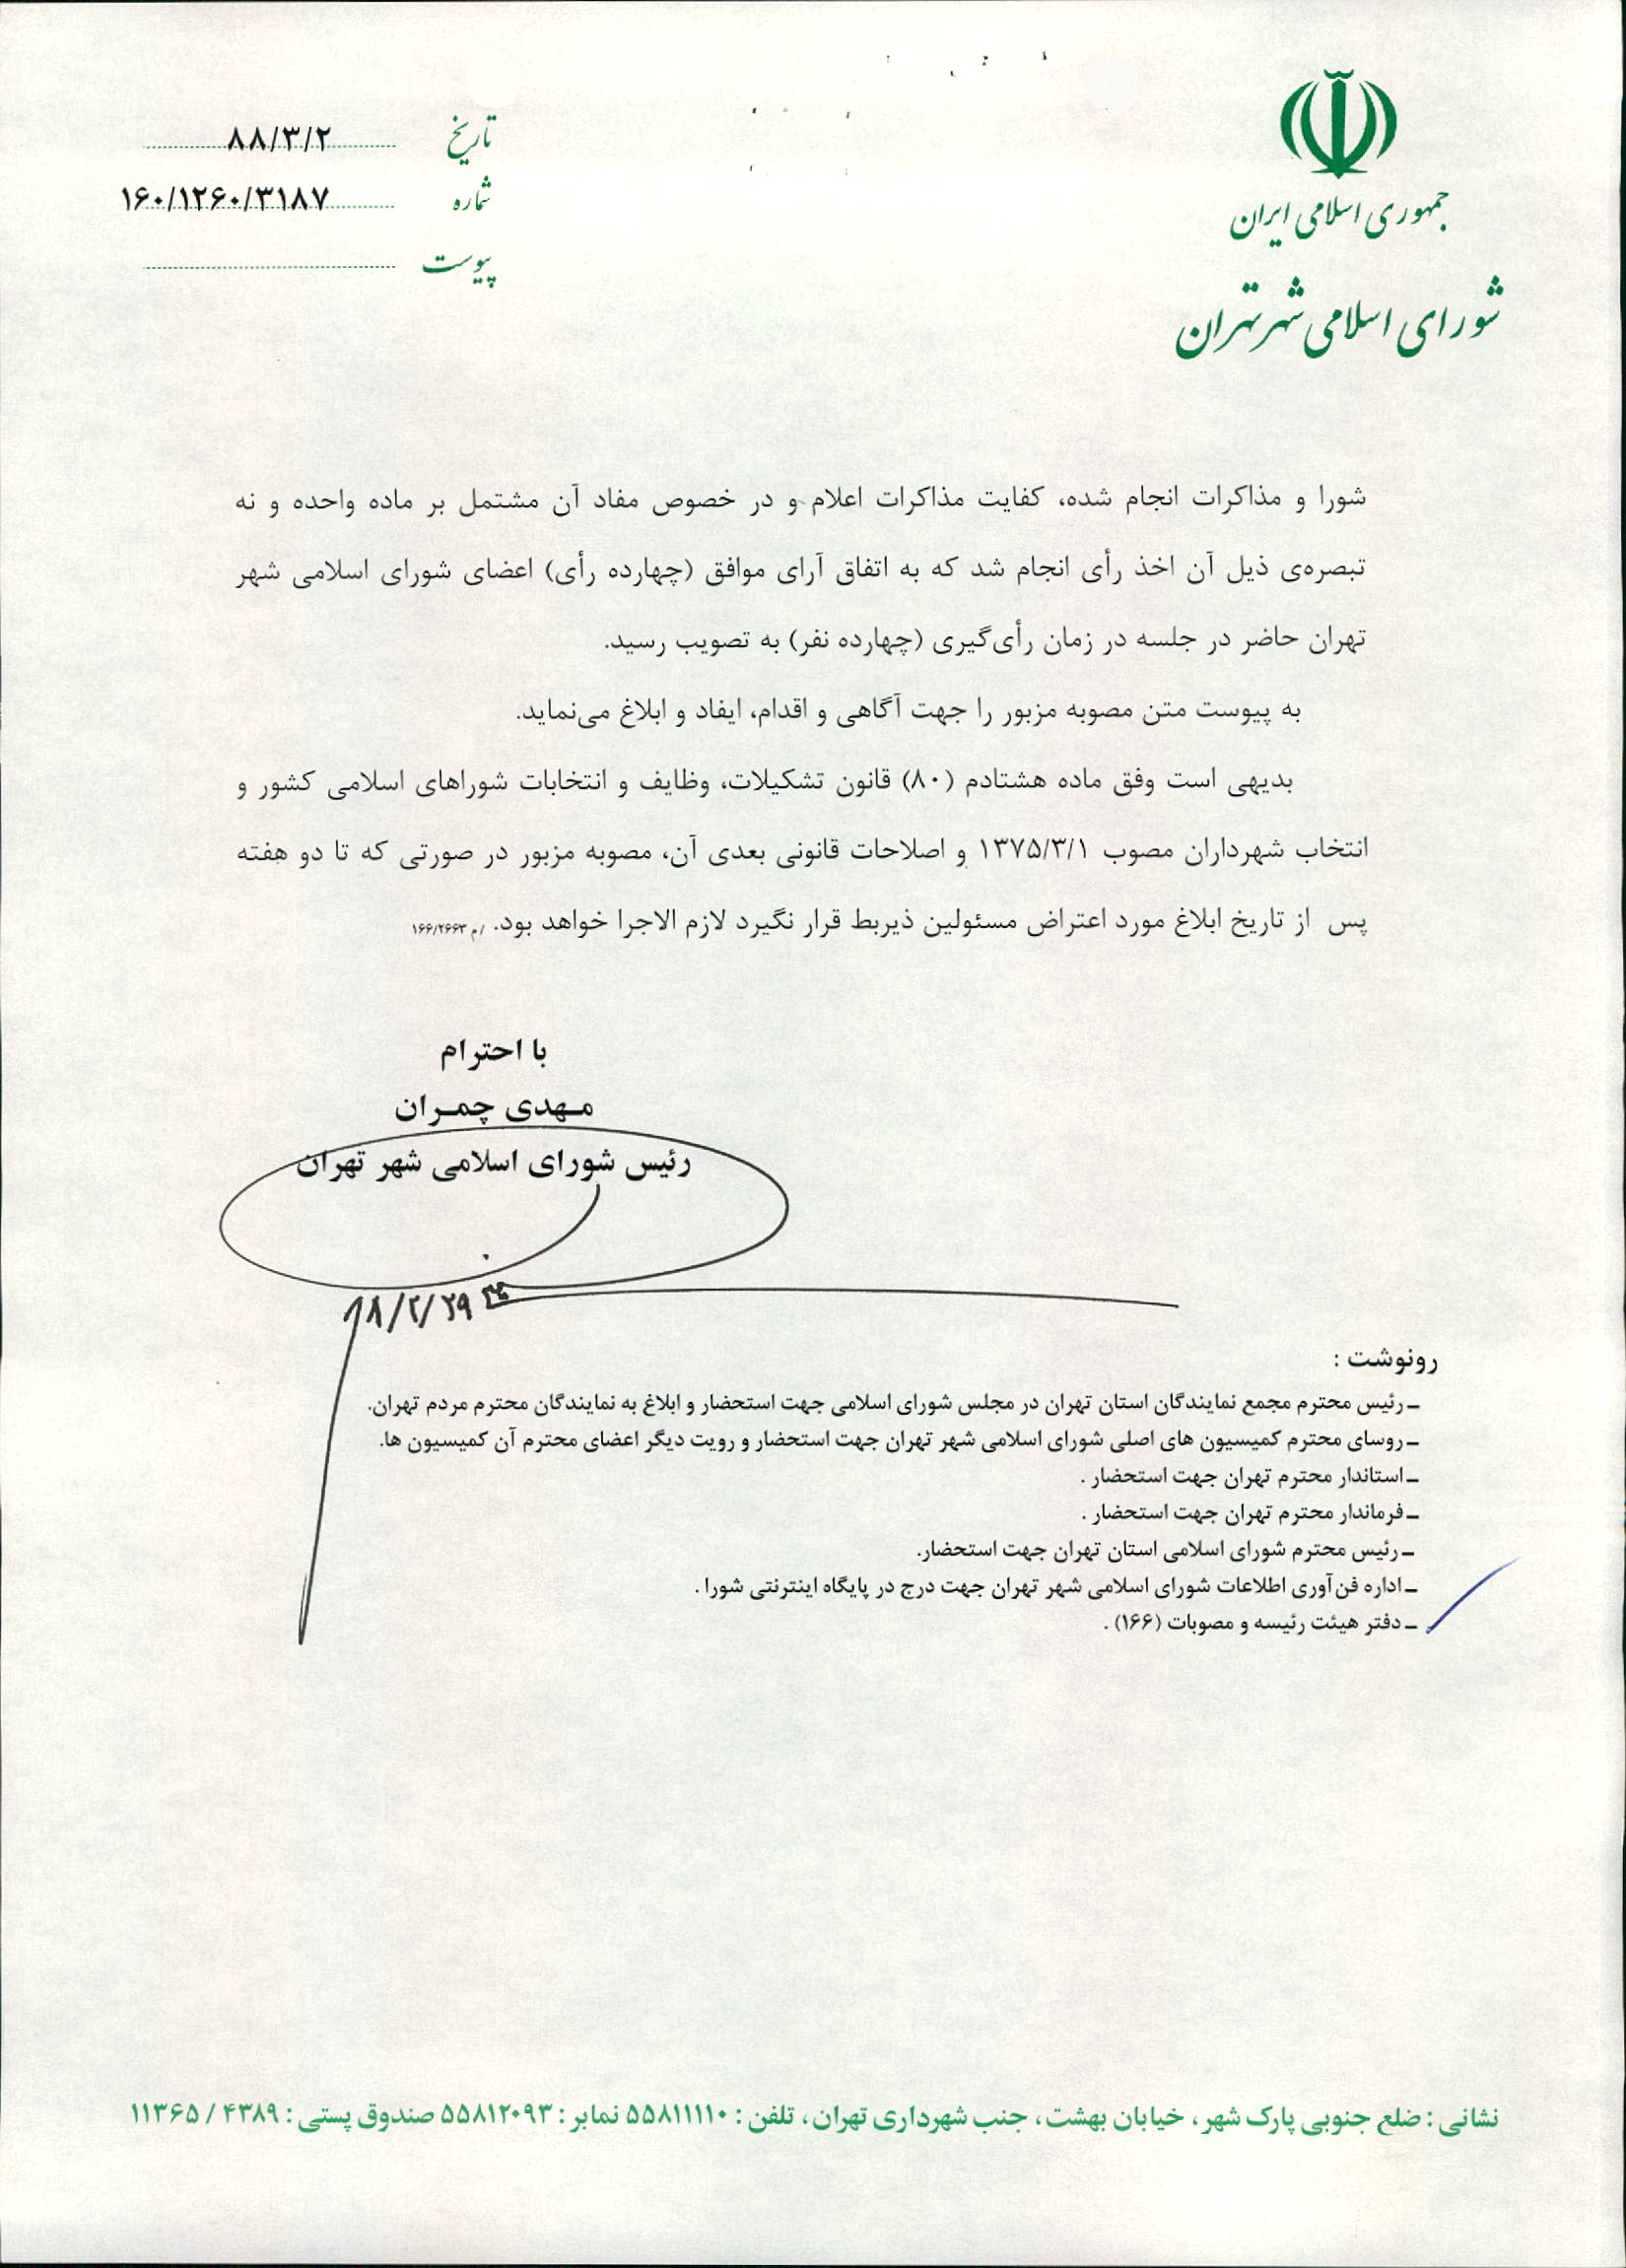 جمهوری اسلامی ایران
شورای اسلامی شهر تهران
تاریخ ۸۸/۳/۲
شماره ۱۶۰/۱۲۶۰/۳۱۸۷
پیوست
شورا و مذاکرات انجام شده، کفایت مذاکرات اعلام و در خصوص مفاد آن مشتمل بر ماده واحده و نه
تبصره‌ی ذیل آن اخذ رأی انجام شد که به اتفاق آرای موافق (چهارده رأی) اعضای شورای اسلامی شهر
تهران حاضر در جلسه در زمان رأی‌گیری (چهارده نفر) به تصویب رسید.
به پیوست متن مصوبه مزبور را جهت آگاهی و اقدام، ایفاد و ابلاغ می‌نماید.
بدیهی است وفق ماده هشتادم (۸۰) قانون تشکیلات، وظایف و انتخابات شوراهای اسلامی کشور و
انتخاب شهرداران مصوب ۱۳۷۵/۳/۱ و اصلاحات قانونی بعدی آن، مصوبه مزبور در صورتی که تا دو هفته
پس از تاریخ ابلاغ مورد اعتراض مسئولین ذیربط قرار نگیرد لازم الاجرا خواهد بود. /م ۱۶۶/۲۶۶۳
با احترام
مهدی چمران
رئیس شورای اسلامی شهر تهران
۸۸/۲/۲۹
رونوشت :
ـ رئیس محترم مجمع نمایندگان استان تهران در مجلس شورای اسلامی جهت استحضار و ابلاغ به نمایندگان محترم مردم تهران.
ـ روسای محترم کمیسیون های اصلی شورای اسلامی شهر تهران جهت استحضار و رویت دیگر اعضای محترم آن کمیسیون ها.
ـ استاندار محترم تهران جهت استحضار .
ـ فرماندار محترم تهران جهت استحضار .
ـ رئیس محترم شورای اسلامی استان تهران جهت استحضار.
ـ اداره فن آوری اطلاعات شورای اسلامی شهر تهران جهت درج در پایگاه اینترنتی شورا .
ـ دفتر هیئت رئیسه و مصوبات (۱۶۶) .
نشانی : ضلع جنوبی پارک شهر ، خیابان بهشت ، جنب شهرداری تهران ، تلفن : ۵۵۸۱۱۱۱۰ نمابر : ۵۵۸۱۲۰۹۳ صندوق پستی : ۴۳۸۹ / ۱۱۳۶۵